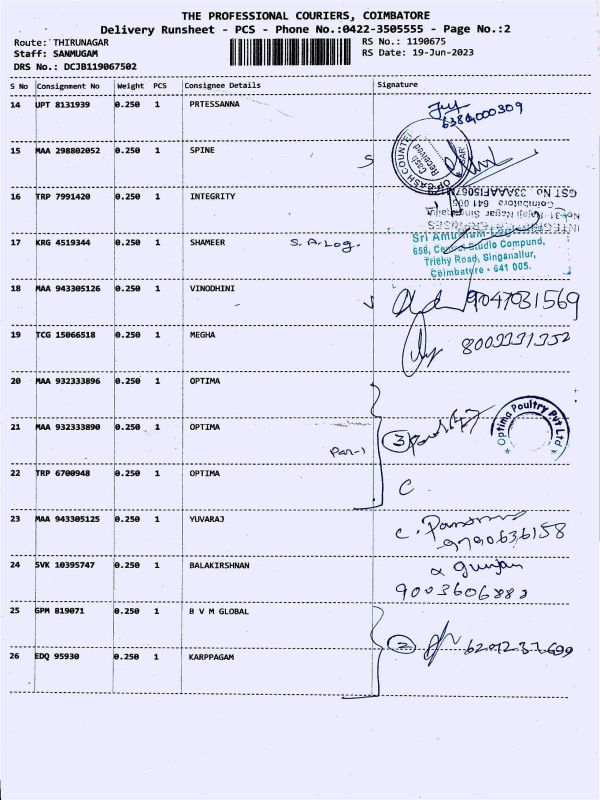 THE PROFESSIONAL COURIERS, COIMBATORE
Delivery Runsheet - PCS - Phone No.:0422-3505555 - Page No.:2
Route: THIRUNAGAR
RS No.: 1190675
Staff: SANMUGAM
RS Date: 19-Jun-2023
DRS No.: DCJB119067502
S No Consignment No Weight PCS Consignee Details Signature
14 UPT 8131939 0.250 1 PRTESSANNA
15 MAA 298802052 0.250 1 SPINE
CASH COUNTER
Cash
Received
16 TRP 7991420 0.250 1 INTEGRITY
GST No
Coimbatore 641 005
17 KRG 4519344 0.250 1 SHAMEER S.A.Log.
Sri
658, Central Studio Compund,
Trichy Road, Singanallur,
Coimbatore - 641 005.
18 MAA 943305126 0.250 1 VINODHINI
9047031569
19 TCG 15066518 0.250 1 MEGHA
20 MAA 932333896 0.250 1 OPTIMA
21 MAA 932333890 0.250 1 OPTIMA
3
Optima Poultry Pvt Ltd
22 TRP 6700948 0.250 1 OPTIMA
C
23 MAA 943305125 0.250 1 YUVARAJ
9790636158
24 SVK 10395747 0.250 1 BALAKIRSHNAN
9003606882
25 GPM 819071 0.250 1 B V M GLOBAL
2
26 EDQ 95930 0.250 1 KARPPAGAM